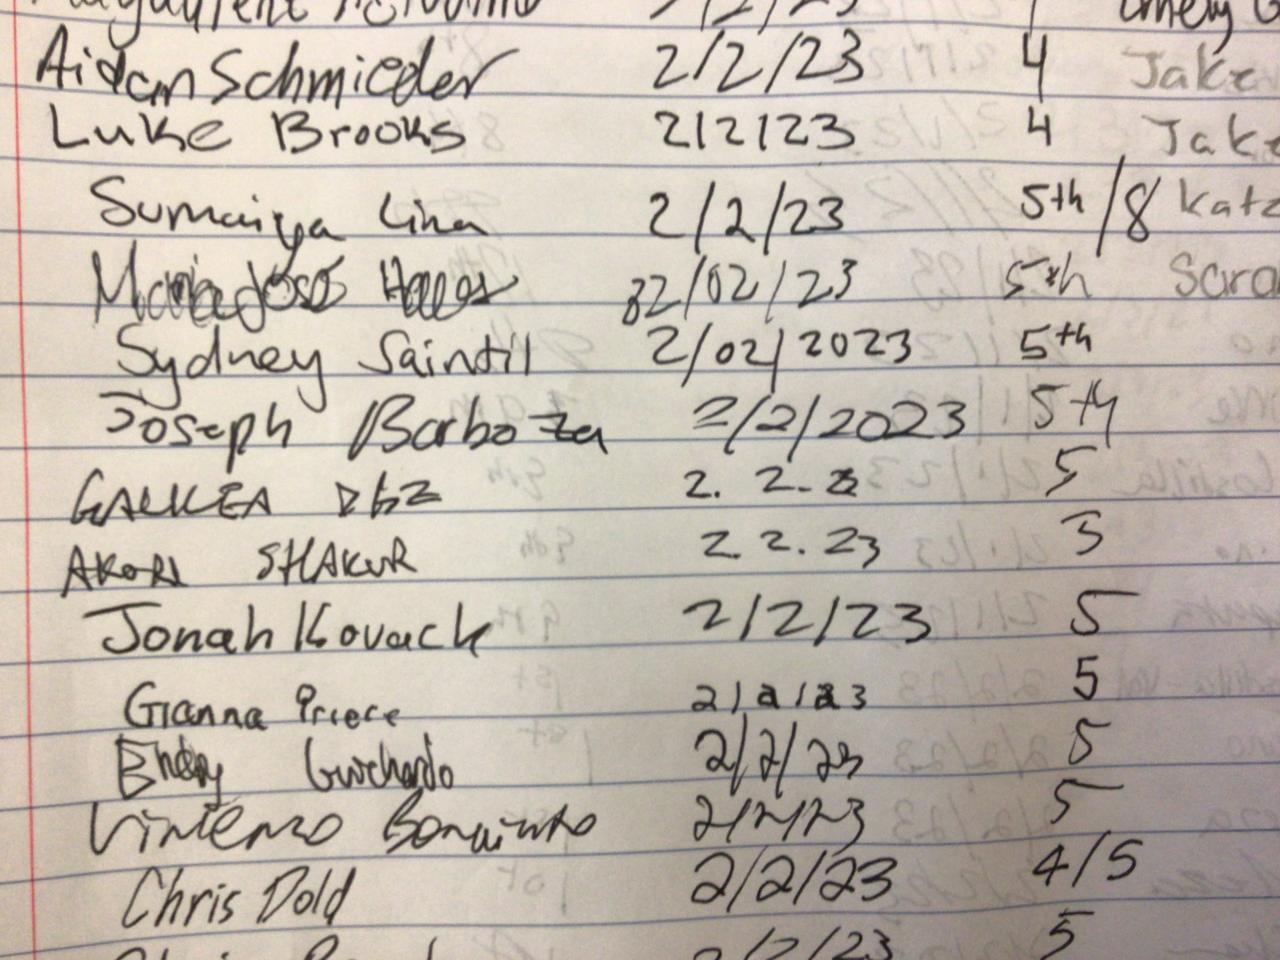 2/2/23
Aidan Schmieder 2/2/23 4 Jake
Luke Brooks 2/2/23 4 Jake
Sumaiya Lina 2/2/23 5th/8 Kat
02/23 5th Sara
Sydney Saintil 2/02/2023 5th
Joseph Barboza 2/2/2023 5th
2. 2. 5
AKORI SHAKUR 2.2.23 5
Jonah Kovack 2/2/23 5
Gianna Priece 2/2/23 5
Guichardo 2/2/23 5
Vincenzo 2/2/23 5
Chris Dold 2/2/23 4/5
2/2/23 5